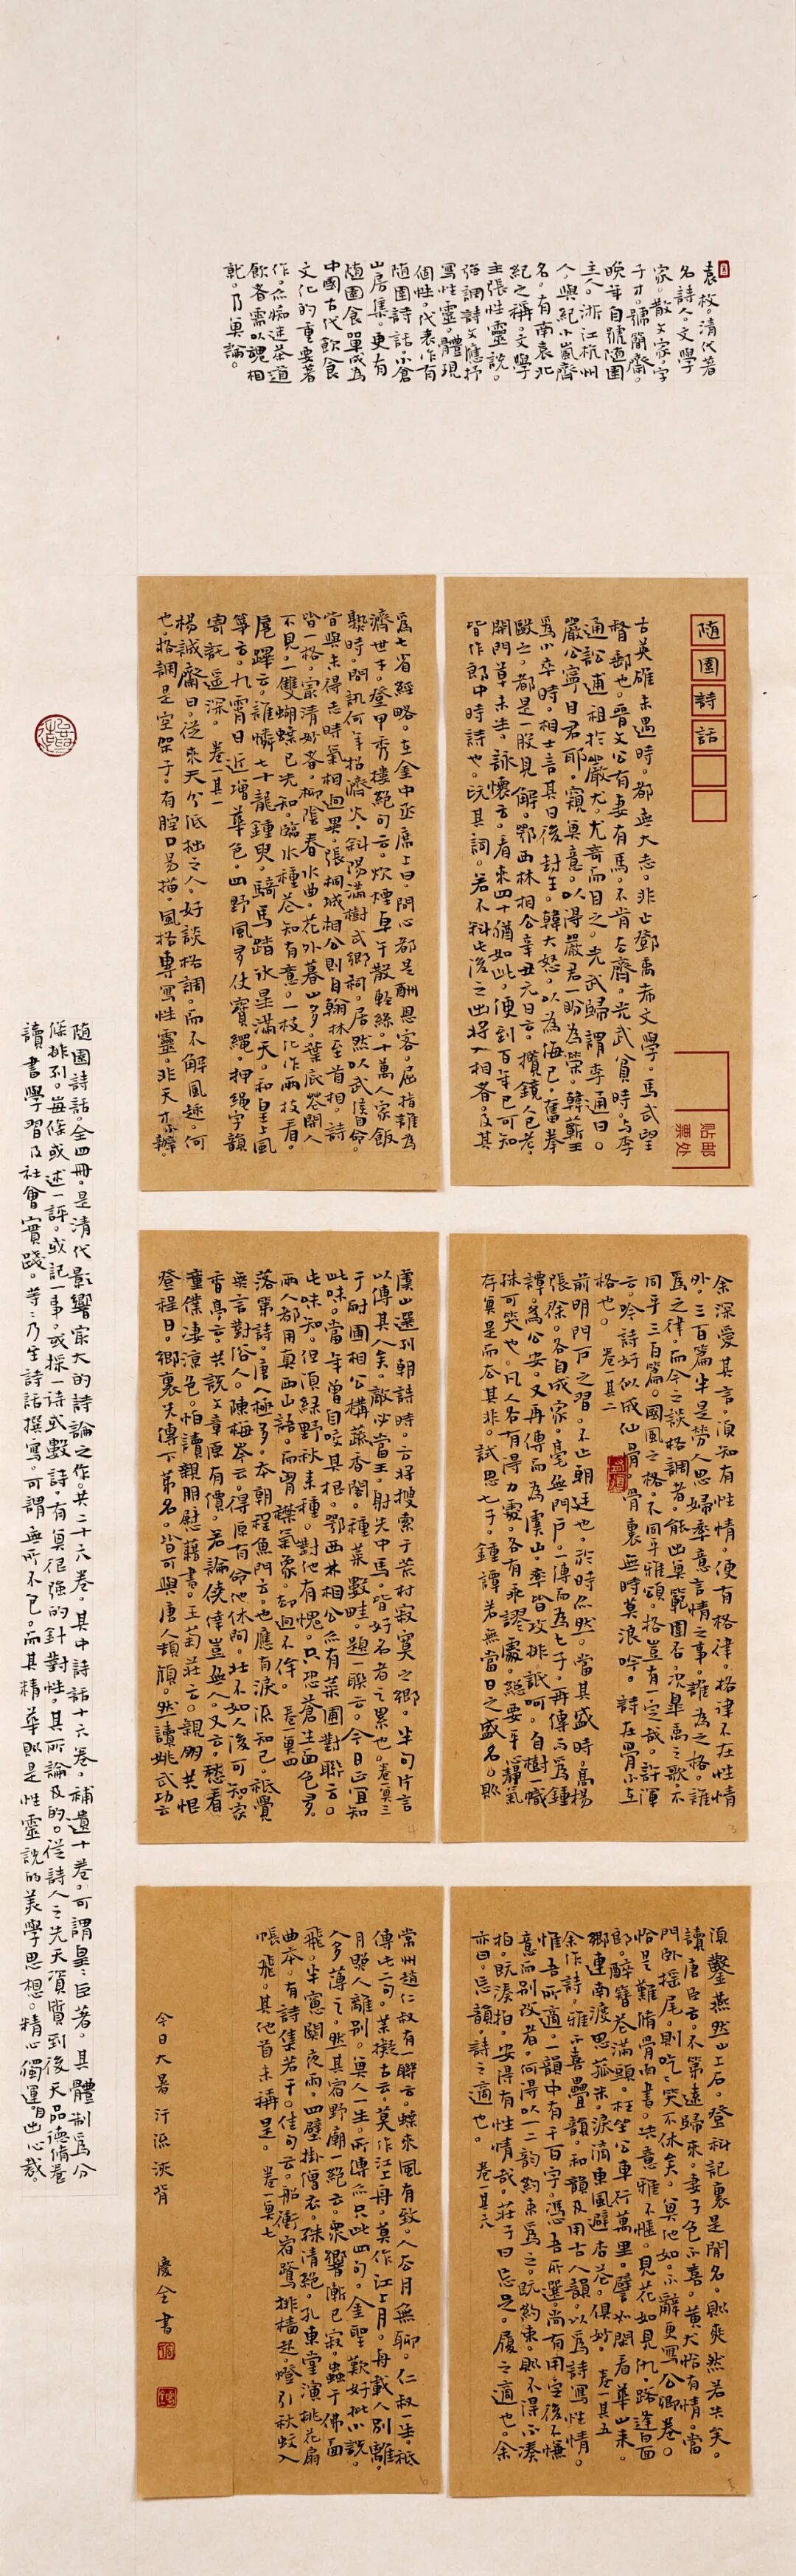 袁枚。清代著
名詩人。文學
家。散文家。字
子才。號簡齋。
晚年自號隨園
主人。浙江杭州
人。與紀小嵐齊
名。有南袁北
紀之稱。文學
主張性靈說。
強調詩文應抒
寫性靈。體現
個性。代表作有
隨園詩話。小倉
山房集。更有
隨園食單成為
中國古代飲食
文化的重要著
作。亦痴迷茶道
飲茗需以魂相
就。乃真論。
隨園詩話
貼郵
票处
古英雄未遇時。都無大志。非止鄧禹希文學。馬武望
督郵也。晉文公有妻有馬。不肯去齊。光武貧時。与李
通訟逋租於嚴尤。尤奇而目之。光武歸謂李通曰。
嚴公寧目君耶。窺其意。以得嚴君一盼為榮。韓蘄王
為小卒時。相士言其日後封王。韓大怒。以為侮己。奮拳
毆之。都是一般見解。鄂西林相公辛丑元日云。攬鏡人已老。
開門草未生。詠懷云。看來四十猶如此。便到百年已可知
皆作郎中時詩也。玩其詞。若不料此後之出將入相者。及其
為七省經略。在金中丞席上曰。問心都是酬恩客。屈指誰為
濟世才。登甲秀樓絕句云。炊煙卓午散輕絲。十萬人家飯
熟時。問訊何年招濟火。斜陽滿樹武鄉祠。居然以武侯自命。
皆與未得志時氣相迥異。張桐城相公則自翰林至首相。詩
皆一格。最清妙者。柳陰春水曲。花外暮山多。葉底花開人
不見。一雙蝴蝶已先知。臨水種花知有意。一枝化作兩枝看。
扈蹕云。誰憐七十龍鍾叟。騎馬踏冰星滿天。和皇上風
箏云。九霄日近增華色。四野風多仗寶繩。押繩字韻
寄託遥深。 卷一其一
楊誠齋曰。從來天分低拙之人。好談格調。而不解風趣。何
也。格調是空架子。有腔口易描。風格專寫性靈。非天才不辦。
余深愛其言。須知有性情。便有格律。格律不在性情
外。三百篇半是勞人思婦率意言情之事。誰為之格。誰
為之律。而今之談格調者。能出其範圍否。况皋禹之歌。不
同乎三百篇。國風之格。不同乎雅頌。格豈有一定哉。許渾
云。吟詩好似成仙骨。骨裏無詩莫浪吟。詩在骨不在
格也。 卷一其二
前明門戶之習。不止朝廷也。於詩亦然。當其盛時。高楊
張徐。各自成家。毫無門戶。一傳而為七子。再傳而為鍾
譚。為公安。又再傳而為虞山。率皆攻排詆呵。自樹一幟
殊可笑也。凡人各有得力處。各有乖謬處。總要平心靜氣
存其是而去其非。試思七子。鍾譚若無當日之盛名。則
虞山選列朝詩時。方將搜索于荒村寂寞之鄉。半句片言
以傳其人矣。敵必當王。射先中馬。皆好名者之累也。卷一其三
于耐圃相公構蔬香閣。種菜數畦。題一聯云。今日正宜知
此味。當年曾自咬其根。鄂西林相公亦有菜圃對聯云。
此味知。但須綠野秋来種。對他有愧。只恐蒼生面色多。
兩人都用真西山語。而胃襟氣象。却迥不侔。 卷一其四
落第詩。唐人極多。本朝程魚門云。也應有淚流知己。祇覺
無言對俗人。陳梅岑云。得原有命他休問。壯不如人後可知。家
香亭云。共說文章原有價。若論僥倖豈無人。又云。愁看
童僕淒涼色。怕讀親朋慰藉書。王菊莊云。親朋共悵
登程日。鄉裏先傳下第名。皆可與唐人頡頏。然讀姚武功云
須鑿燕然山上石。登科記裏是閒名。則爽然若失矣。
讀唐臣云。不第遠歸來。妻子色不喜。黃犬恰有情。當
門卧摇尾。則吃吃笑不休矣。其他如。不辭更寫公卿卷。
恰是難脩骨肉書。失意雅不愜。見花如見仇。路逢白面
郎。醉簪花滿頭。枉坐公車行萬里。譬如閒看華山来。
鄉連南渡思菰米。淚滴東風避杏花。俱妙。 卷一其五
余作詩。雅不喜疊韻。和韻及用古人韻。以為詩寫性情。
惟吾所適。一韻中有千百字。憑吾所選。尚有用定後不慊
意而別改者。何得以一二韻約束為之。既約束。則不得不湊
拍。既湊拍。安得有性情哉。莊子曰。忘足。履之適也。余
亦曰。忘韻。詩之適也。 卷一其六
常州趙仁叔有一聯云。蝶來風有致。人去月無聊。仁叔一生。祇
傳此二句。某擬古云。莫作江上舟。莫作江上月。舟載人別離。
月照人離別。其人一生。所傳亦只此四句。金聖歎好批小說。
人多薄之。然其宿野廟一絕云。衆響漸已寂。蟲于佛面
飛。半窗關夜雨。四壁掛僧衣。殊清絕。孔東堂演桃花扇
曲本。有詩集若干。佳句云。船衝宿鷺排檣起。燈引秋蚊入
帳飛。其他首未稱是。 卷一其七
今日大暑汗流浹背 慶全書
隨園詩話。全四冊。是清代影響宏大的詩論之作。共二十六卷。其中詩話十六卷。補遺十卷。可謂皇皇巨著。其體制為分
條排列。每條或述一評。或記一事。或採一詩或數詩。有其很強的針對性。其所論及的。從詩人之先天資質到後天品德脩養
讀書學習及社會實踐。等等乃至詩話撰寫。可謂無所不包。而其精華則是性靈說的美學思想。精心獨運。自出心裁。